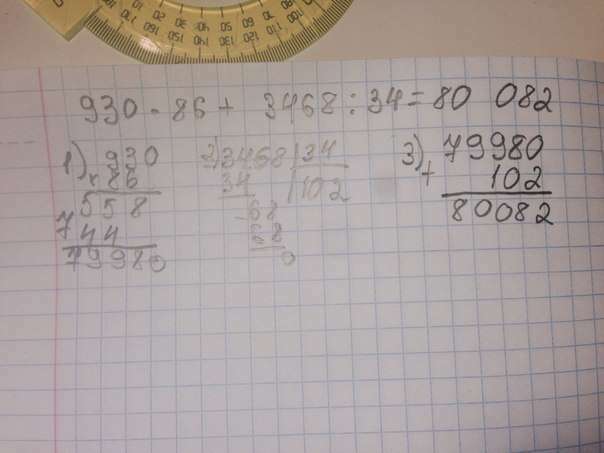 930 · 86 + 3468 : 34 = 80 082
1) 930
× 86
558
744
79980
2) 3468 | 34
34 | 102
68
68
0
3) 79980
+ 102
80082